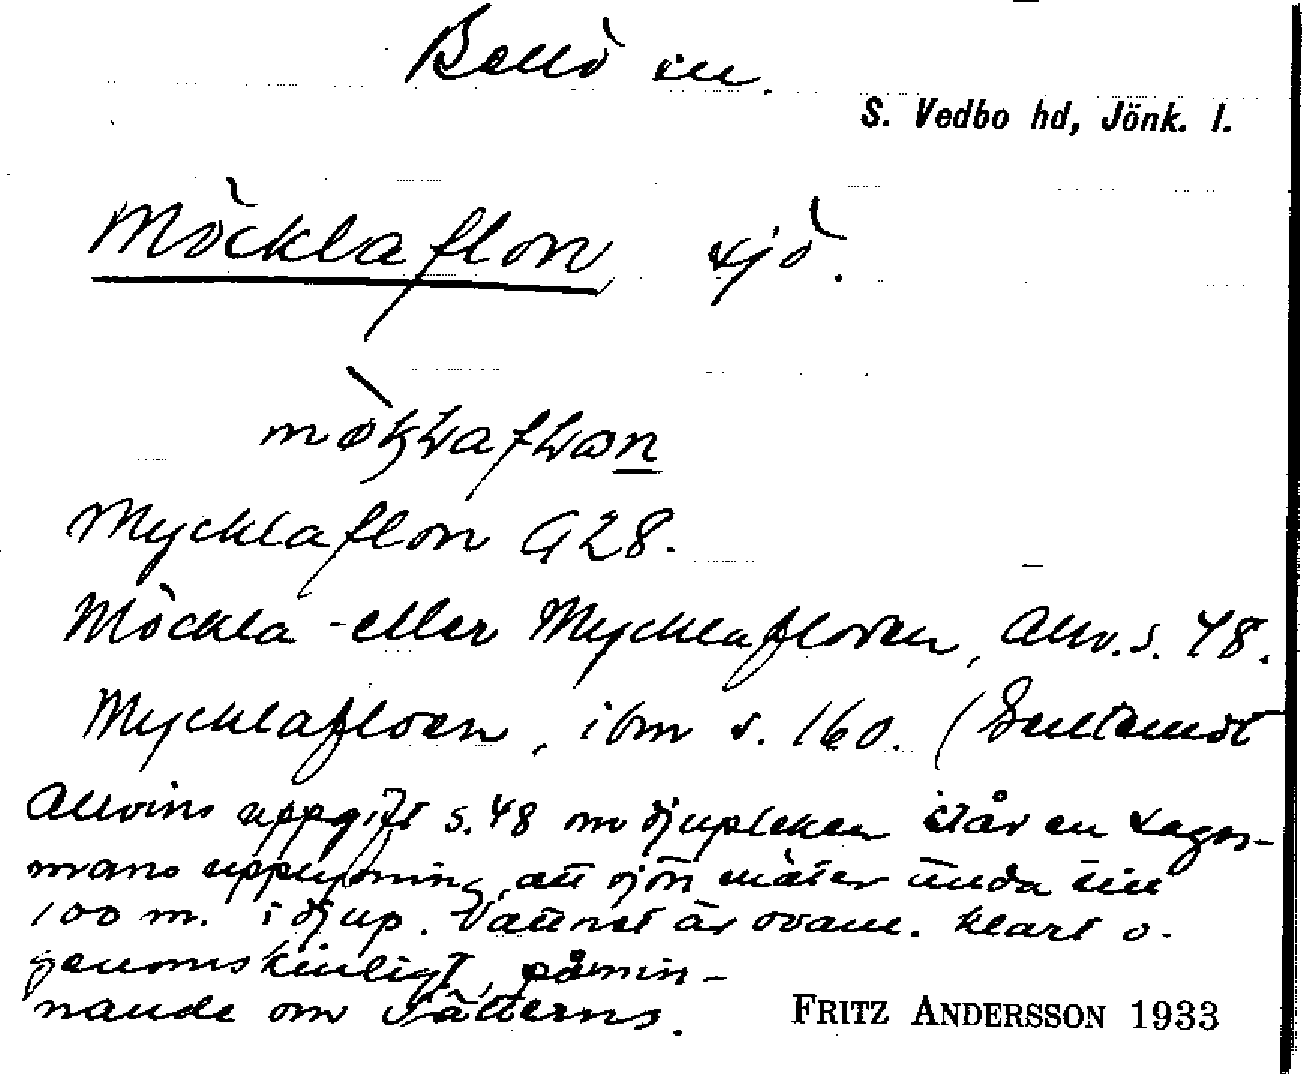 Bellö sn.
S. Vedbo hd, Jönk. l.
Möcklaflon sjö.
Mycklaflon G28.
Möckla- eller Mycklafloen, Allv. s. 48.
Mycklafloen, ibm s. 160. (Enl
Allvins uppgift s. 48 om djupleken står en Lager-
mans upplysning, att sjön mäter ända till
100 m. i djup. Vattnet är ovanl. klart o.
genomskinligt, påmin-
nande om Vätterns.
FRITZ ANDERSSON 1933